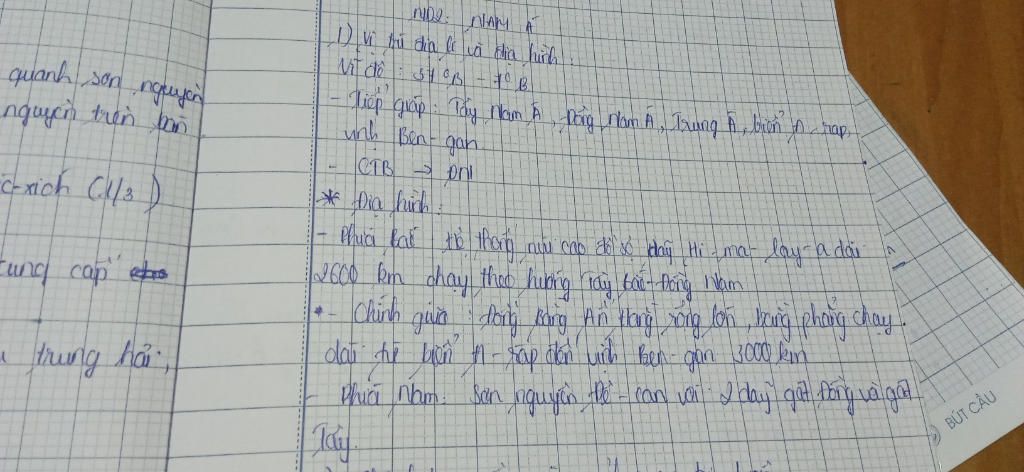 quanh sơn nguyên
nguyên trên bán
c-xich (1/3)
cung cấp
trung hải,
NDQ: NAM Á
1) Vị trí địa lí và địa hình.
Vĩ độ: °B - 7°B
- Tiếp giáp: Tây Nam Á, Đông Nam Á, Trung Á, biển A-rap,
vịnh Ben-gan
- CTB → ĐN
* Địa hình:
- Phía Bắc hệ thống núi cao đồ sộ dãy Hi-ma-lay-a dài
2600 km chạy theo hướng Tây bắc-Đông Nam
- Chính giữa: đồng bằng Ấn Hằng rộng lớn, bằng phẳng chạy
dài từ biển A-ráp đến vịnh Ben-gan 3000km
- Phía Nam: Sơn nguyên Đê-can với 2 dãy gát Đông và gát
Tây.
BÚT CÂU